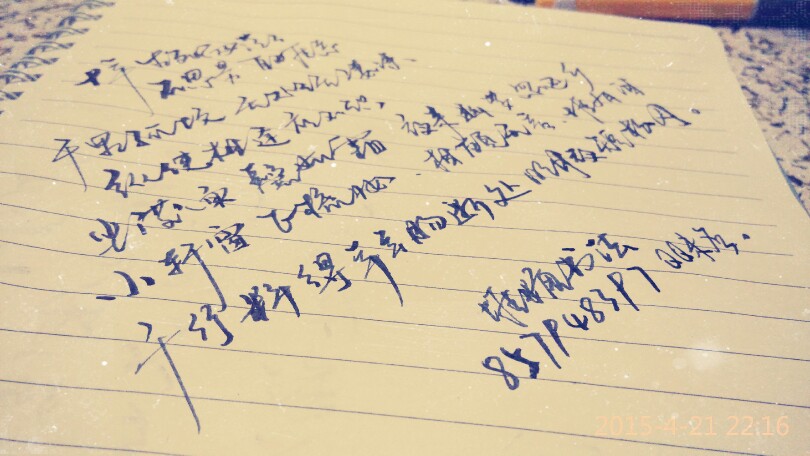 十年生死两茫茫
不思量 自难忘
千里孤坟 无处话凄凉.
纵使相逢应不识.
尘满面 鬓如霜 夜来幽梦忽还乡
小轩窗 正梳妆. 相顾无言. 惟有泪
千行 料得年年肠断处 明月夜短松冈.
书法
2015-4-21 22:16